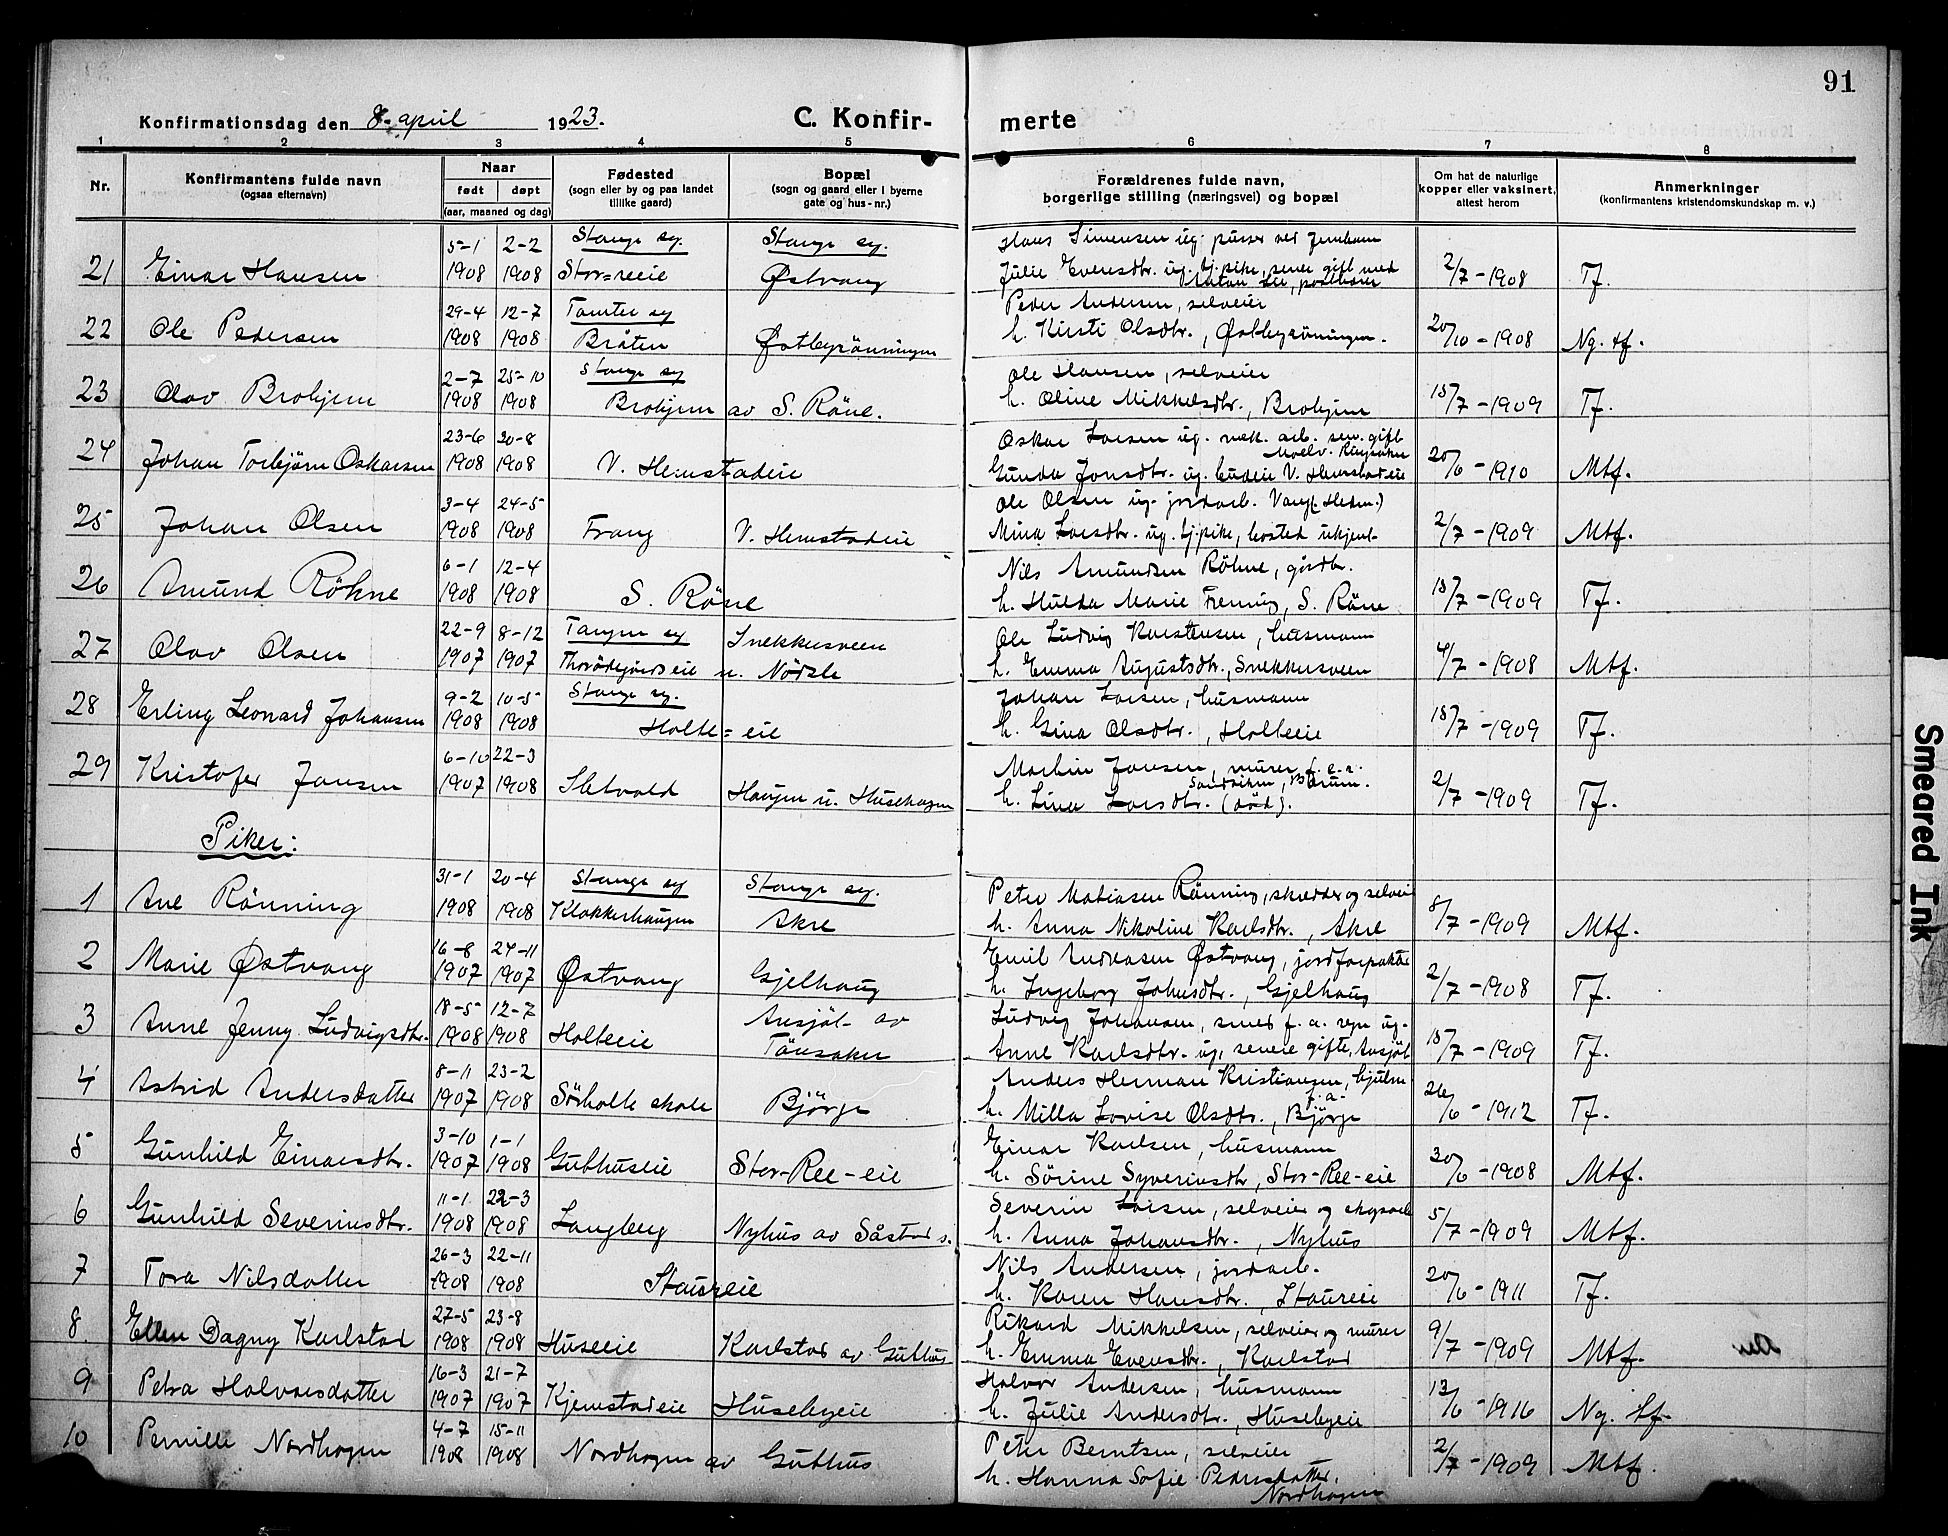 91
Konfirmationsdag den 8. april 1923.
C. Konfirmerte
1 2 3 4 5 6 7 8
Nr.
Konfirmantens fulde navn
(ogsaa efternavn)
Naar
født døpt
(aar, maaned og dag)
Fødested
(sogn eller by og paa landet
tillike gaard)
Bopæl
(sogn og gaard eller i byerne
gate og hus-nr.)
Forældrenes fulde navn,
borgerlige stilling (næringsvei) og bopæl
Om hat de naturlige
kopper eller vaksinert,
attest herom
Anmerkninger
(konfirmantens kristendomskundskap m. v.)
5-1 2-2 Stange sg. Stange sg. Hans Simensen ug. pusser ved Jernbanen
21 Einar Hansen 1908 1908 Stor=reeie Østvang Julie Evensdtr. ug. tj. pike, senere gift med 2/7-1908 Tf.
29-4 12-7 Tomter sg Peder Andersen, selveier
22 Ole Pedersen 1908 1908 Bråten Østbyrönningen h. Kirsti Olsdtr., Østbyröningen. 20/10-1908 Ng. tf.
2-7 25-10 Stange sg Ole Hansen, selveier
23 Olav Brohjem 1908 1908 Brohjem av S. Röne. h. Oline Mikkelsdtr., Brohjem 15/7-1909 Tf.
23-6 20-8 Oskar Larsen ug. mek. arb. sen. gift
Moelv. Ringsaker
24 Johan Torbjørn Oskarsen 1908 1908 V. Hemstadeie Gunda Jonsdtr. ug. budeie V. Hemstadeie 20/6-1910 Mtf.
3-4 24-5 Ole Olsen ug. jordarb. Vang (Hedm.)
25 Johan Olsen 1908 1908 Frang V. Hemstadeie Mina Larsdtr. ug. tj.pike, bosted ukjent 2/7-1909 Mtf.
6-1 12-4 Nils Amundsen Röhne, gårdbr.
26 Amund Röhne 1908 1908 S. Röne h. Hulda Marie Frenning, S. Röne 15/7-1909 Tf.
22-9 8-12 Tangen sg Snekkusveen Ole Ludvig Karstensen, husmann
27 Olav Olsen 1907 1907 u. Nödsle h. Emma Augustsdtr., Snekkusveen 4/7-1908 Mtf.
9-2 10-5 Stange sg. Johan Larsen, husmann
28 Erling Leonard Johansen 1908 1908 Holte=eie h. Gina Olsdtr., Holteeie 15/7-1909 Tf.
6-10 22-3 Martin Jansen, murer f.e.r.
Sandviken, Bærum.
29 Kristofer Jansen 1907 1908 Sletvold Haugen u. Husehagen h. Lina Larsdtr. (død). 2/7-1909 Tf.
Piker:
31-1 20-4 Stange sg Stange sg. Peter Matiasen Rönning, skredder og selveier
1 Ane Rönning 1908 1908 Klokkerhaugen Akre h. Anna Nikoline Karlsdtr., Akre 8/7-1909 Mtf.
16-8 24-11 Emil Andreasen Østvang, jordforpakter
2 Marie Østvang 1907 1907 Østvang Gjelhaug h. Ingeborg Johansdtr., Gjelhaug 2/7-1908 Tf.
18-5 12-7 Ansjöt av Ludvig Johansen, smed f. a. ug.
3 Anne Jenny Ludvigsdtr. 1908 1908 Holteeie Tönsaker Anne Karlsdtr. ug. senere gifte, Ansjöt 15/7-1909 Tf.
8-11 23-2 Anders Herman Kristiansen, hjulm
f.a.
4 Astrid Andersdatter 1907 1908 Sörholte skole Björge h. Milla Lovise Olsdtr., Björge 26/6-1912 Tf.
3-10 1-1 Einar Karlsen, husmann
5 Gunhild Einarsdtr. 1907 1908 Guthuseie Stor-Ree-eie h. Sörine Syverinsdtr, Stor-Ree-eie 30/6-1908 Mtf.
11-1 22-3 Severin Larsen, selveier og skogsarb
6 Gunhild Severinsdtr. 1908 1908 Langberg Nyhus av Såstad s. h. Anna Johansdtr., Nyhus 5/7-1909 Mtf.
26-3 22-11 Nils Andersen, jordarb.
7 Tora Nilsdatter 1908 1908 Staureie h. Karen Hansdtr., Staureie 20/6-1911 Tf.
27-5 23-8 Rikard Mikkelsen, selveier og murer
8 Ellen Dagny Karlstad 1908 1908 Huseeie Karlstad av Guthus h. Emma Evensdtr., Karlstad 9/7-1909 Mtf.
16-3 21-7 Halvor Andersen, husmann
9 Petra Halvorsdatter 1907 1907 Kjemstadeie Husebyeie h. Julie Andersdtr., Husebyeie 13/6-1916 Ng. tf.
4-7 15-11 Peter Berntsen, selveier
10 Pernille Nordhagen 1908 1908 Nordhagen av Guthus h. Hanna Sofie Pedersdatter. 2/7-1909 Mtf.
Nordhagen
Smeared Ink